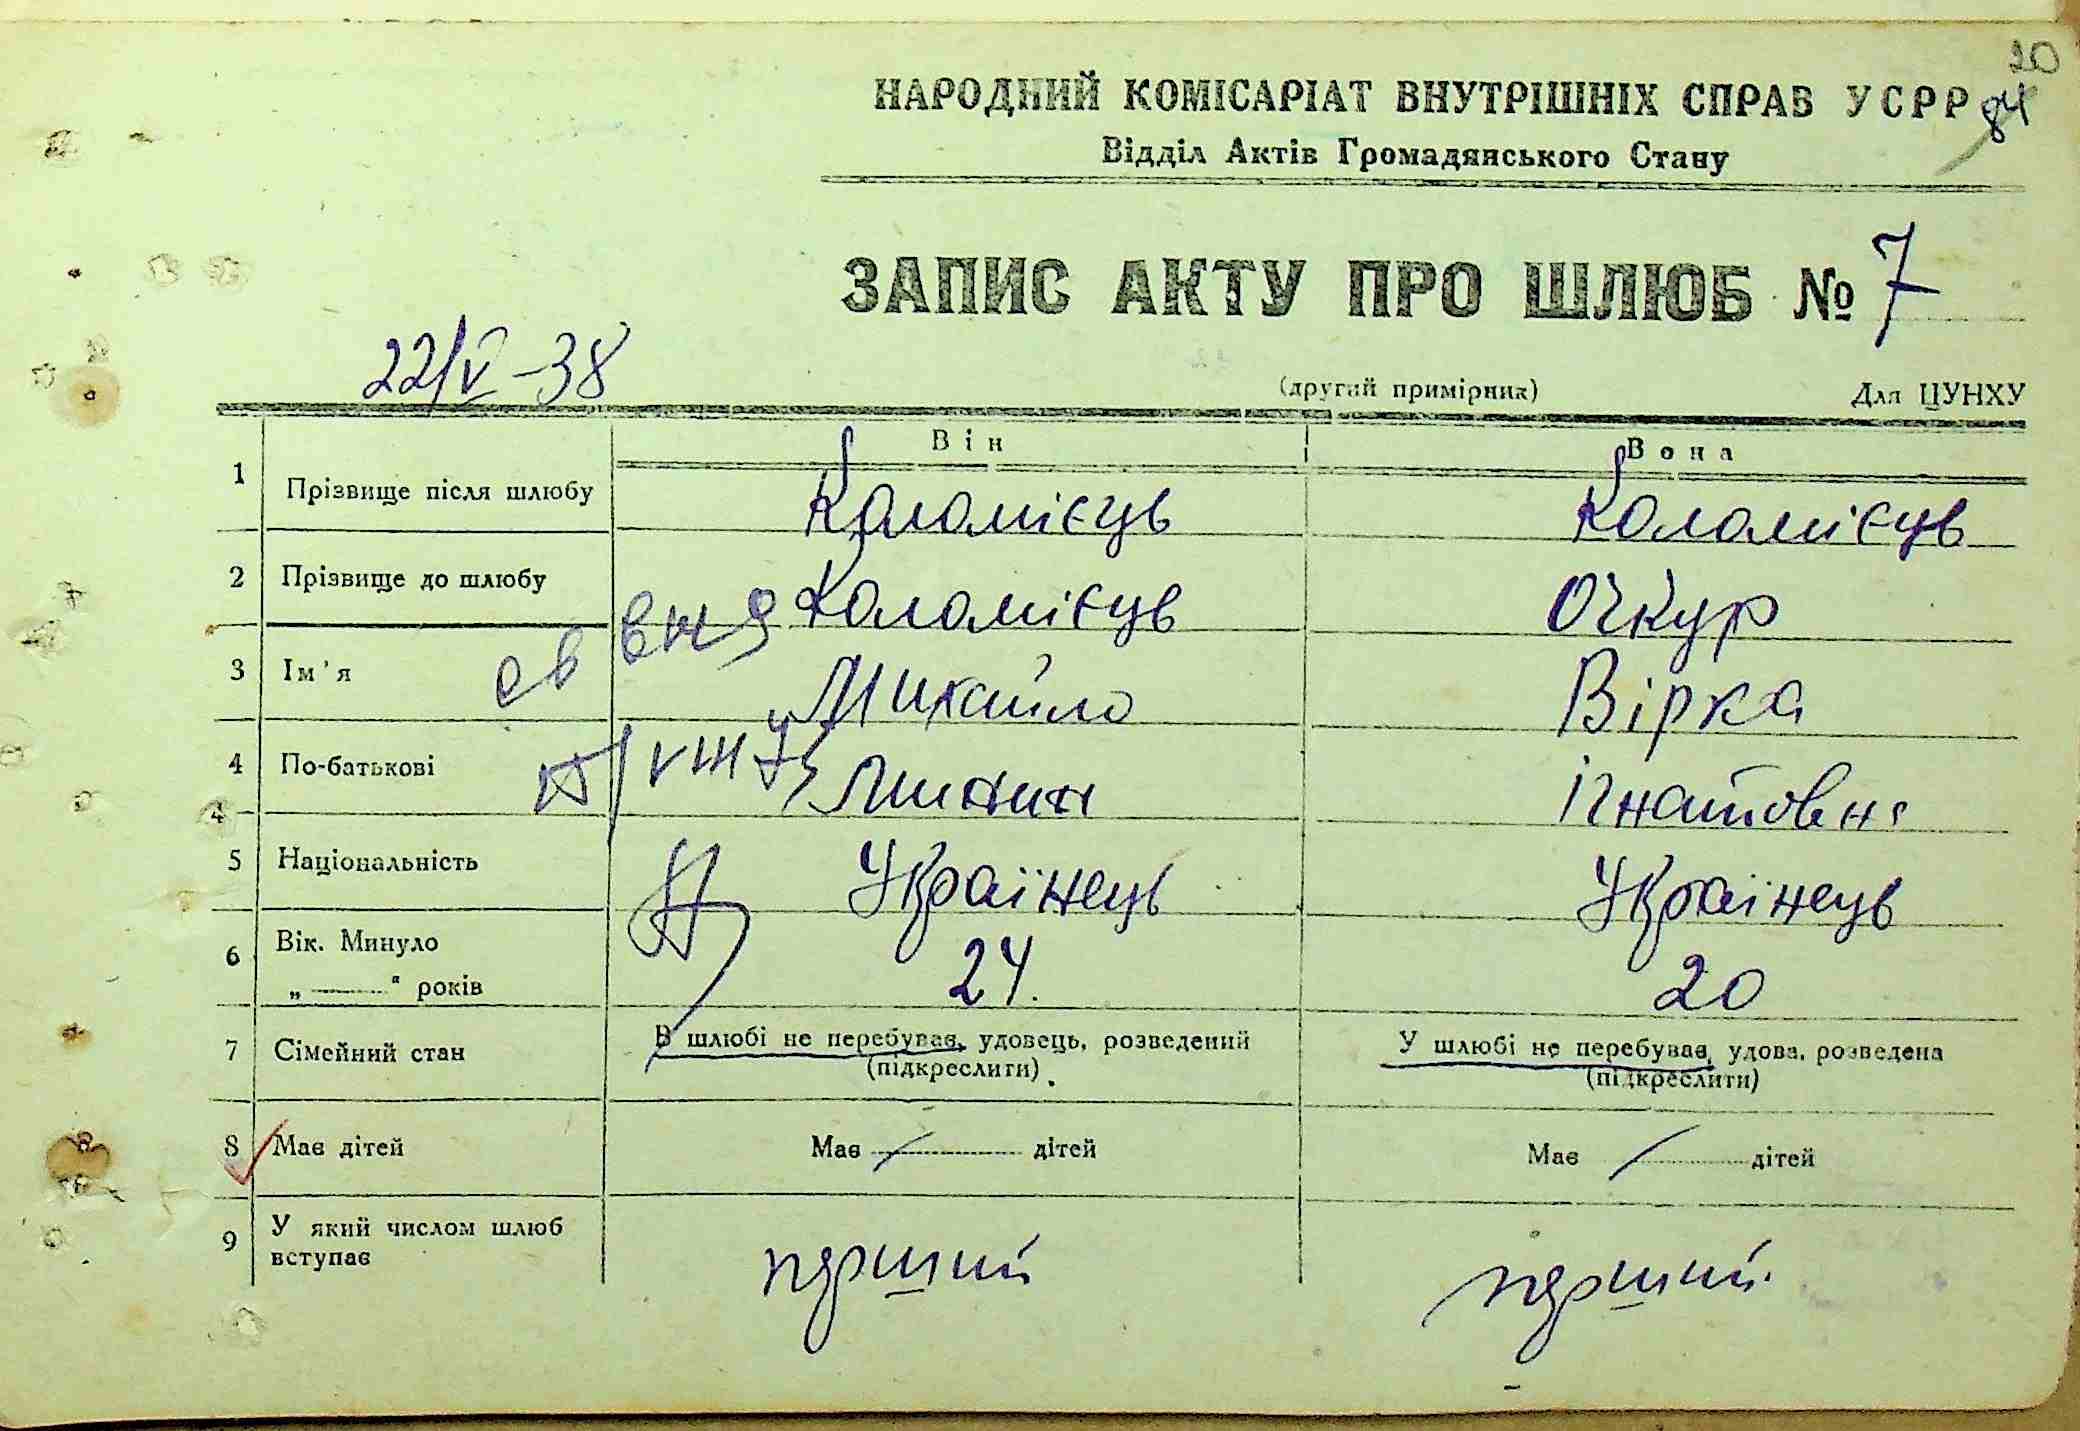 20
НАРОДНИЙ КОМІСАРІАТ ВНУТРІШНІХ СПРАВ УСРР
84
Відділ Актів Громадянського Стану
ЗАПИС АКТУ ПРО ШЛЮБ № 7
22/V-38
(другий примірник) Для ЦУНХУ
Він Вона
1 Прізвище після шлюбу Коломієць Коломієць
2 Прізвище до шлюбу Коломієць Очкур
3 Ім'я Михайло Вірка
4 По-батькові Ігнатовна
4
5 Національність Українець Українець
6 Вік. Минуло 24. 20
„ " років
7 Сімейний стан В шлюбі не перебував, удовець, розведений У шлюбі не перебував, удова, розведена
(підкреслити) (підкреслити)
8 Має дітей Має / дітей Має / дітей
9 У який числом шлюб
вступає перший перший